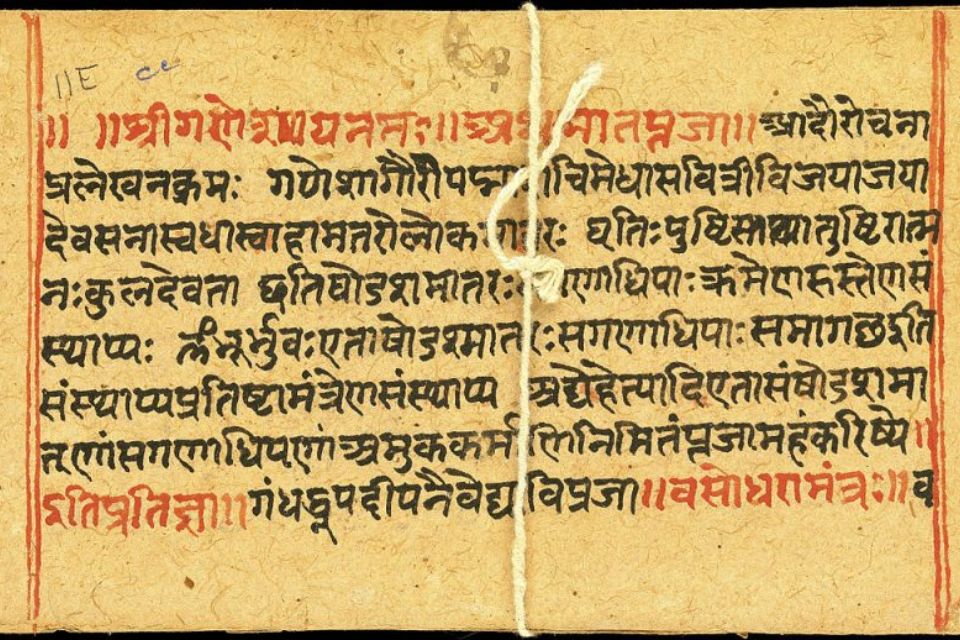 ॥E cc
॥ ॥श्रीगणेशायनमः॥अथ मातृपूजा॥आदौरोचना
प्रलेखनक्रमः गणेशागौरीपद्मा चिमेधासवित्रीविजयाजया
देवसेनास्वधास्वाहामातरोलोक मातरः धृतिःपुष्टिस्तथातुष्टिरात्म
नःकुलदेवता इतिषोडशमातरः क्रमेणहस्तेणसं
स्थाप्यः भूर्भुवःएताषोडश्मातरःसगणाधिपाःसमागछइति
संस्थाप्यप्रतिष्टामंत्रेणसंस्थाप्य अद्येहेत्यादिएतासंषोडशमा
तृणांसगणाधिपणां अमुककर्माणिनिमितंपूजामहंकरिष्ये॥
इतिप्रतिज्ञा॥।गंधधूपदीपनैवैद्य विपूजा॥वसोधरामंत्रः॥व